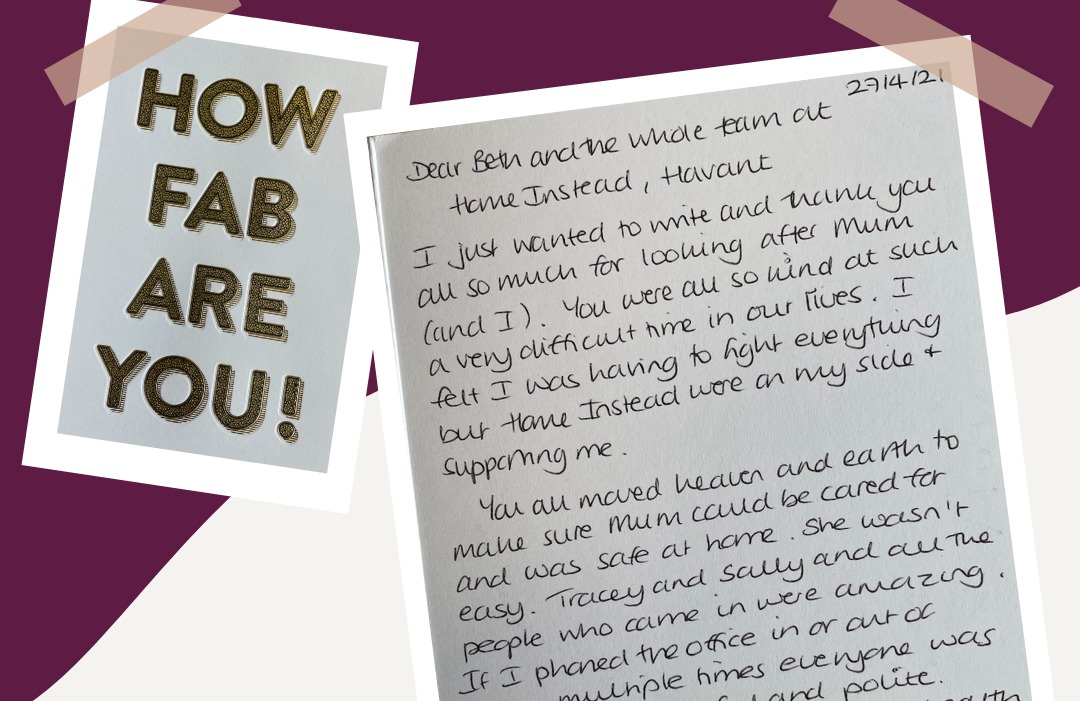 HOW
FAB
ARE
YOU!
27/4/21
Dear Beth and the whole team at
Home Instead, Havant
I just wanted to write and thank you
all so much for looking after Mum
(and I). You were all so kind at such
a very difficult time in our lives. I
felt I was having to fight everything
but Home Instead were on my side +
supporting me.
You all moved heaven and earth to
make sure Mum could be cared for
and was safe at home. She wasn't
easy. Tracey and Sally and all the
people who came in were amazing.
If I phoned the office in or out of
multiple times everyone was
and polite.